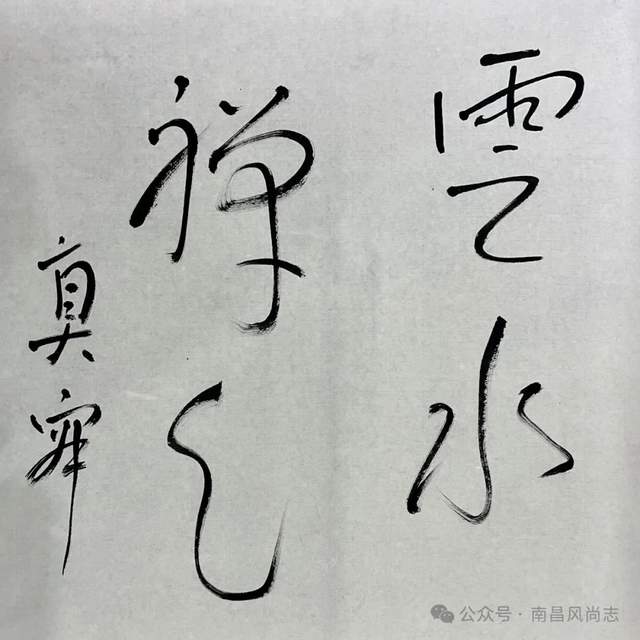 雲水
禅心
真
公众号·南昌风尚志